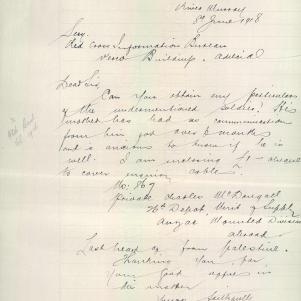 River Murray
8th June 1918
Secy.
Red Cross Information Bureau
Verco Buildings. Adelaide
Dear Sir
Can you obtain any particulars
of the undermentioned Soldier? His
mother has had no communication
from him for over 3 months
and is anxious to know if he is
well. I am enclosing £1 - cheque
to cover enquiry cable.
No: 867
Private Charles McDougall
Depot, Unit of Supply
Anzac Mounted Division
abroad
Last heard of from Palestine.
Thanking you for
your good offices in
this matter
Yours faithfully